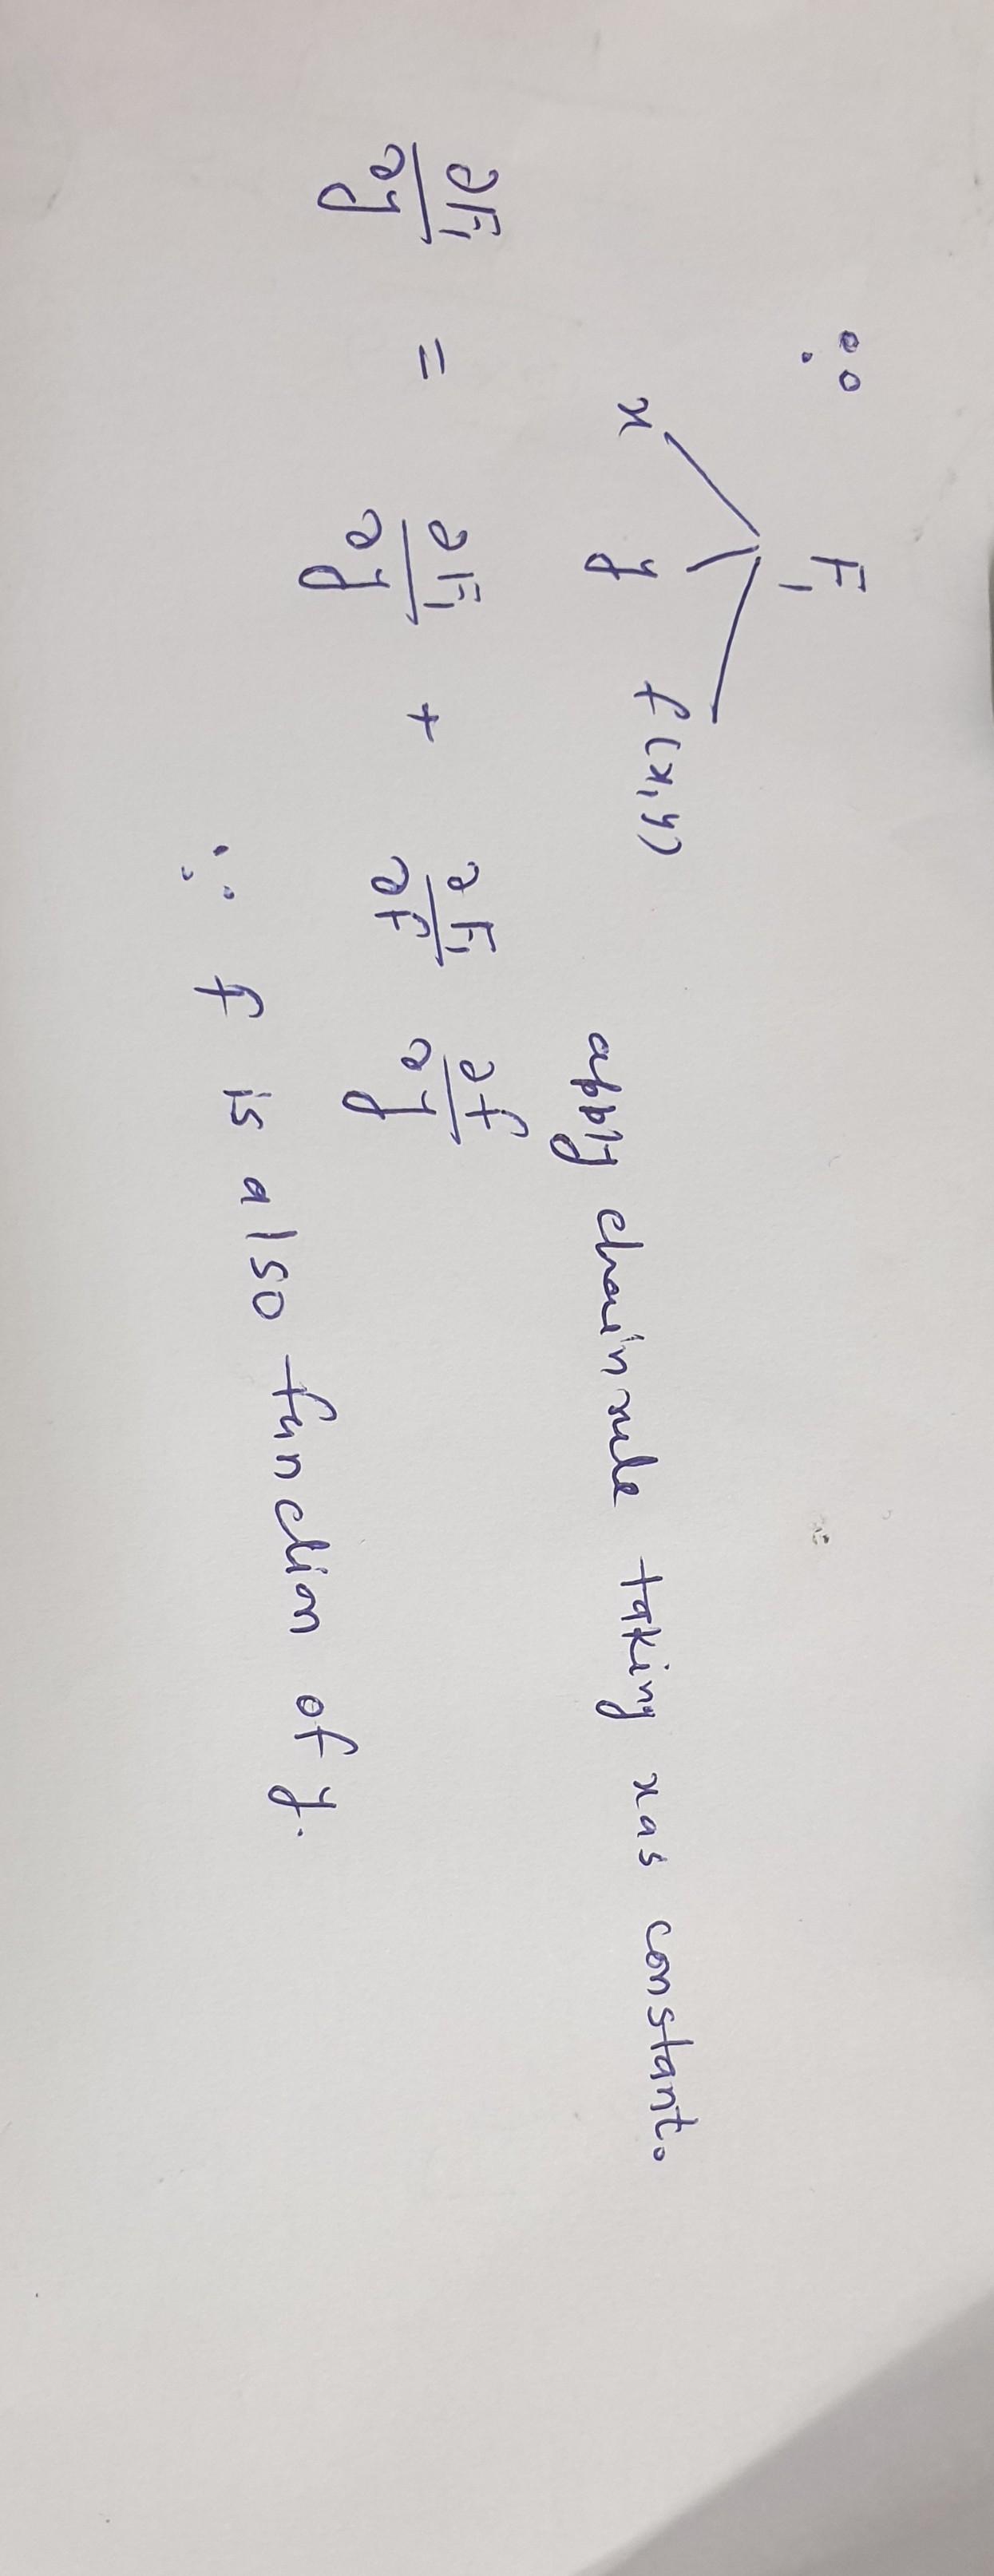 ∵ F₁
x y f(x,y) apply chain rule taking x as constant.
∂F₁/∂y = ∂F₁/∂y + ∂F₁/∂f ∂f/∂y
∵ f is also function of y.